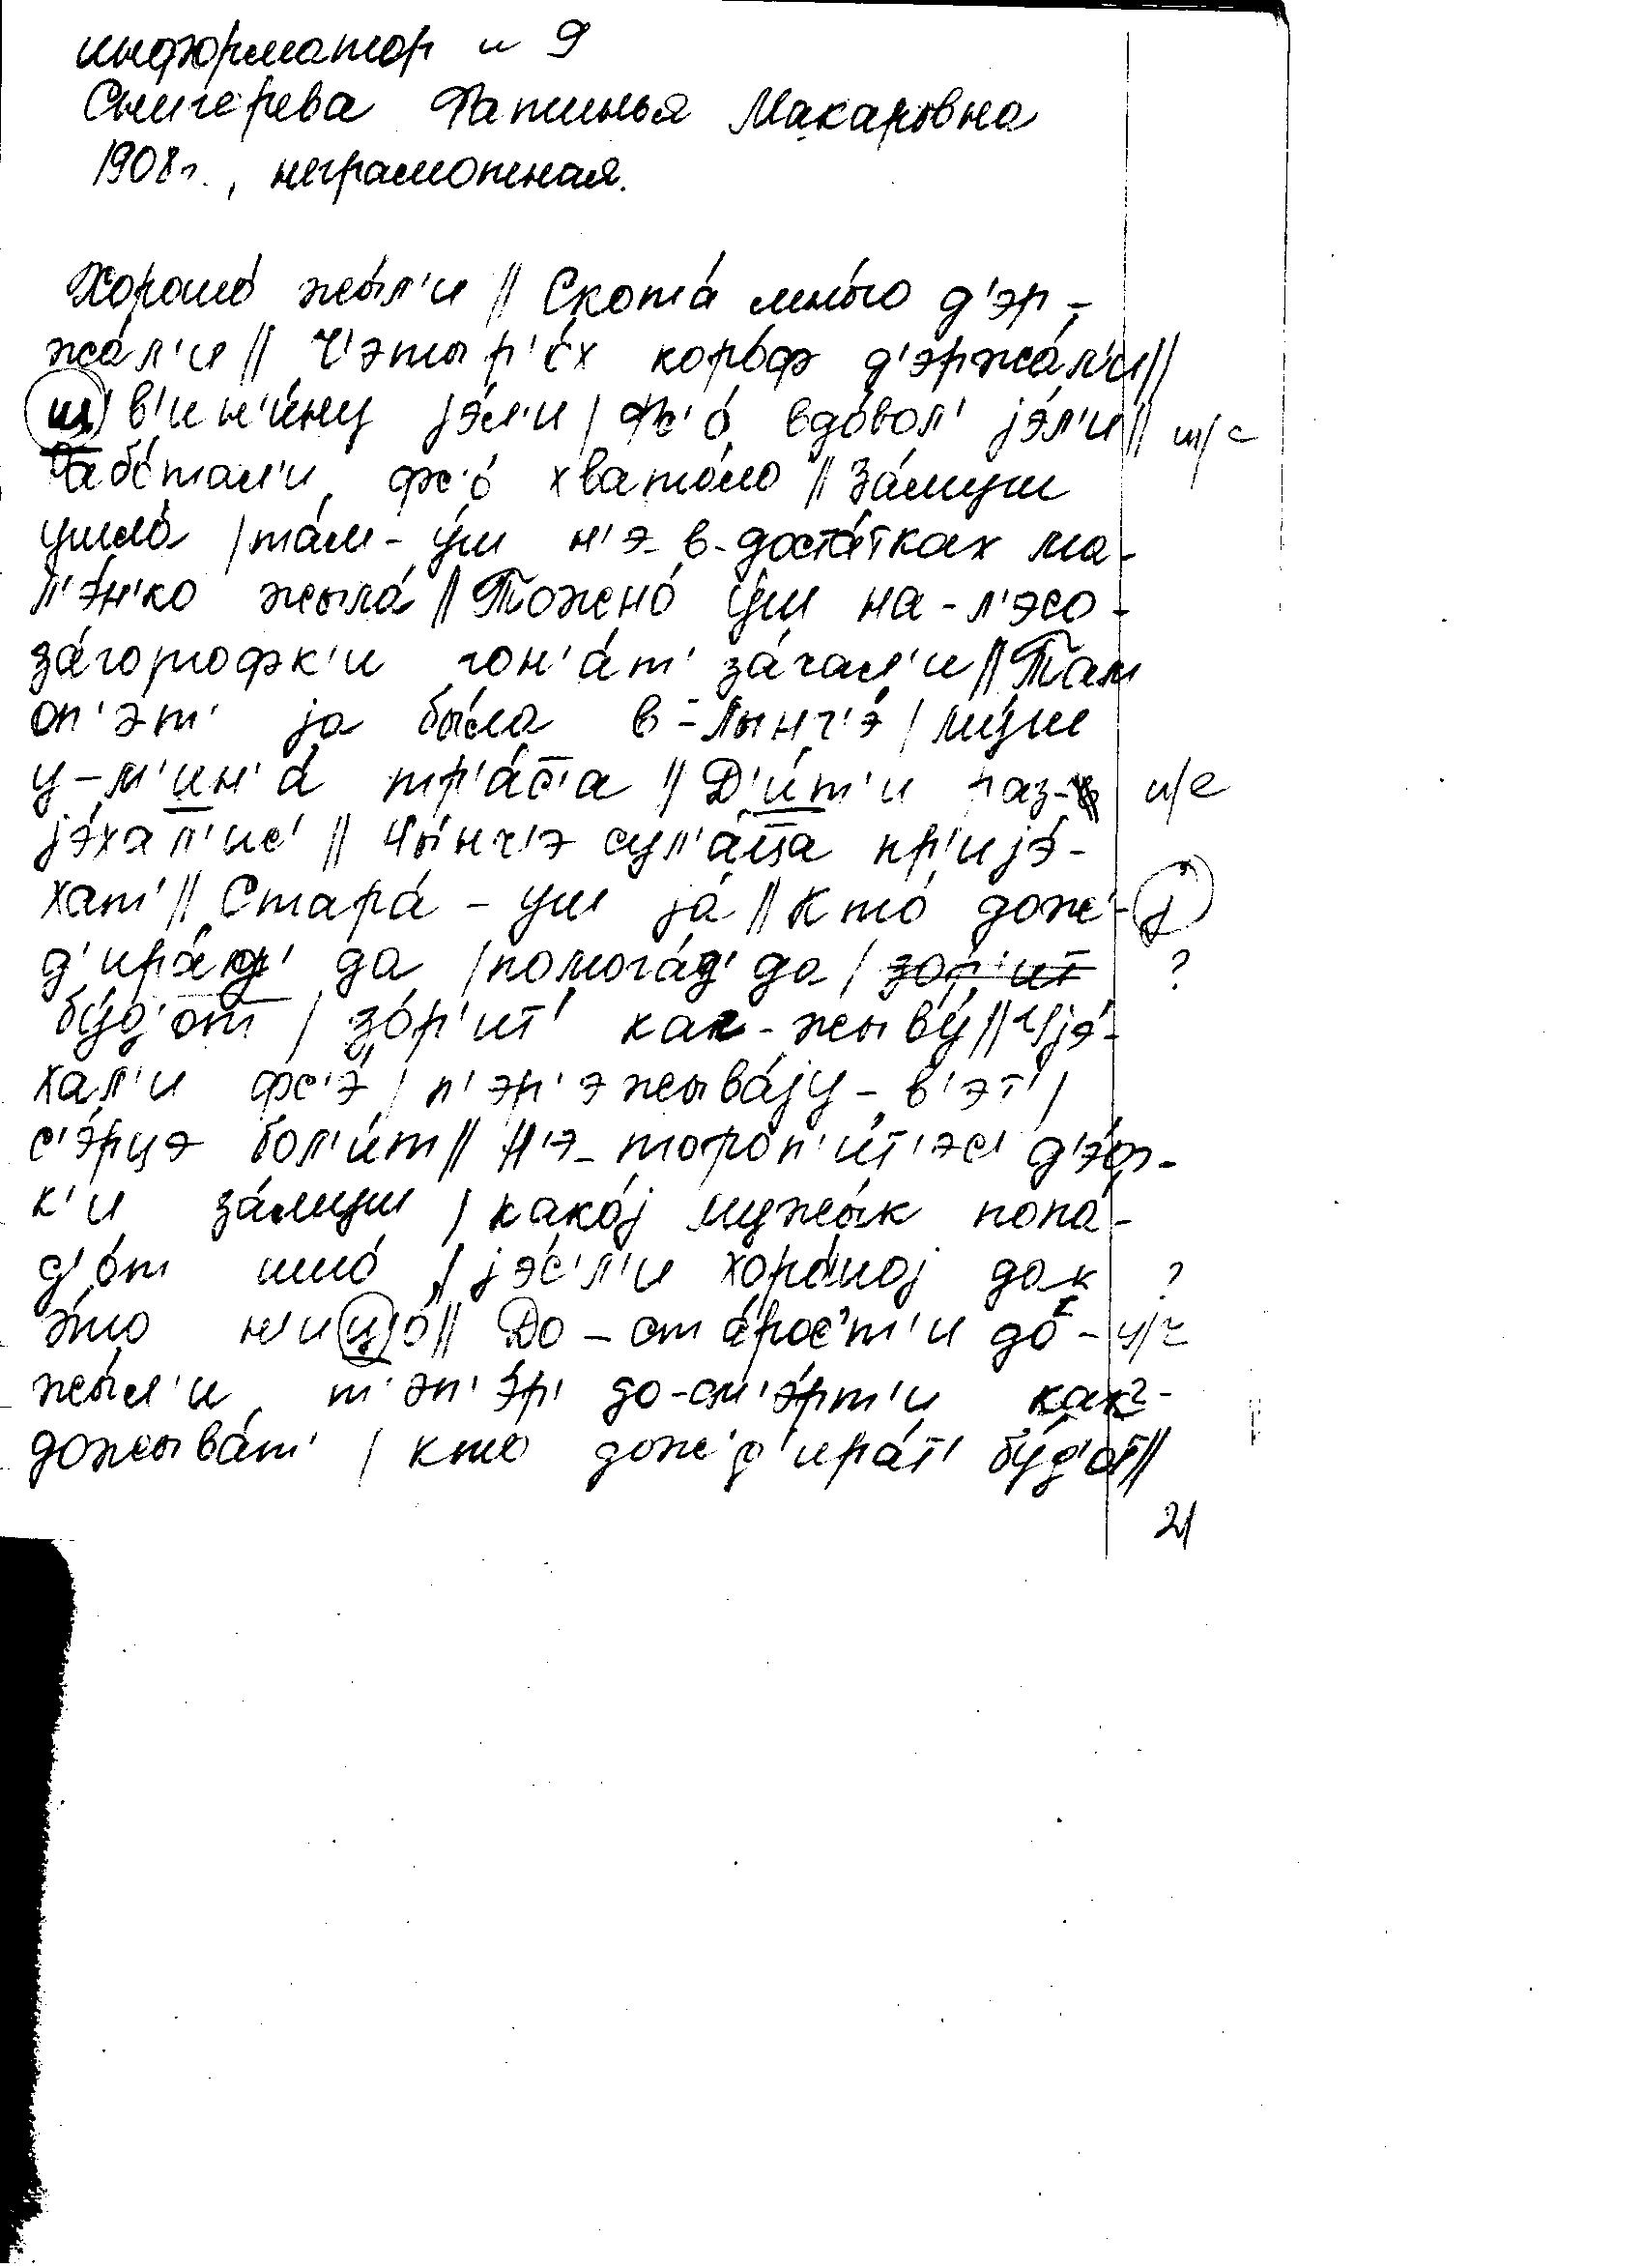 информатор н 9
Снигерева Фатинья Макаровна
1908г., неграмотная.
Хорошо́ жы́л'и // Скота́ мно́го д'эр-
жа́л'и // Ч'этыр'о́х коро́ф д'эржа́л'и //
ш'в'ин'и́ну jэ́л'и / фс'о́ вдо́вол' jэ́л'и // ш/с
Рабо́тал'и, фс'о́ хвата́ло // За́муш
ушла́ / та́м-у́ш н'э-в-доста́тках ма-
л'э́н'ко жыла́ // Тожно́ у́ш на-л'эсо-
за́готофк'и гон'а́т' за́чал'и // Там
оп'э́т' jа бы́ла в- / му́ш
у-м'ин'а́ тр'а́с̄'а // Д'и́т'и раз- и/е
jэ́хал'ис' // Ны́нч'э сул'а́ц̄а пр'иjэ́-
хат' // Стара́-уш jа́ // Кто́ дож'- j
д'ира́ да / помога́д' да / зо́р'ит ?
бу́д'от / зо́р'ит' как-жыву́ // Уjэ́-
хал'и фс'э́ / п'эр'эжыва́jу-в'эт' /
с'э́рцэ бол'и́т // Н'э-тороп'и́т'эс' д'э́ф-
к'и за́муш / како́j мужы́к попа-
д'о́т ишо́ / jэ́с'л'и хоро́шоj док ?
э́то н'ицо́ // До-ста́рос'т'и до́- ц/ч
жы́л'и, т'эп'э́р' до-см'э́рт'и как-
дожыва́т' / кто дож'д'ира́т' бу́д'от //
21